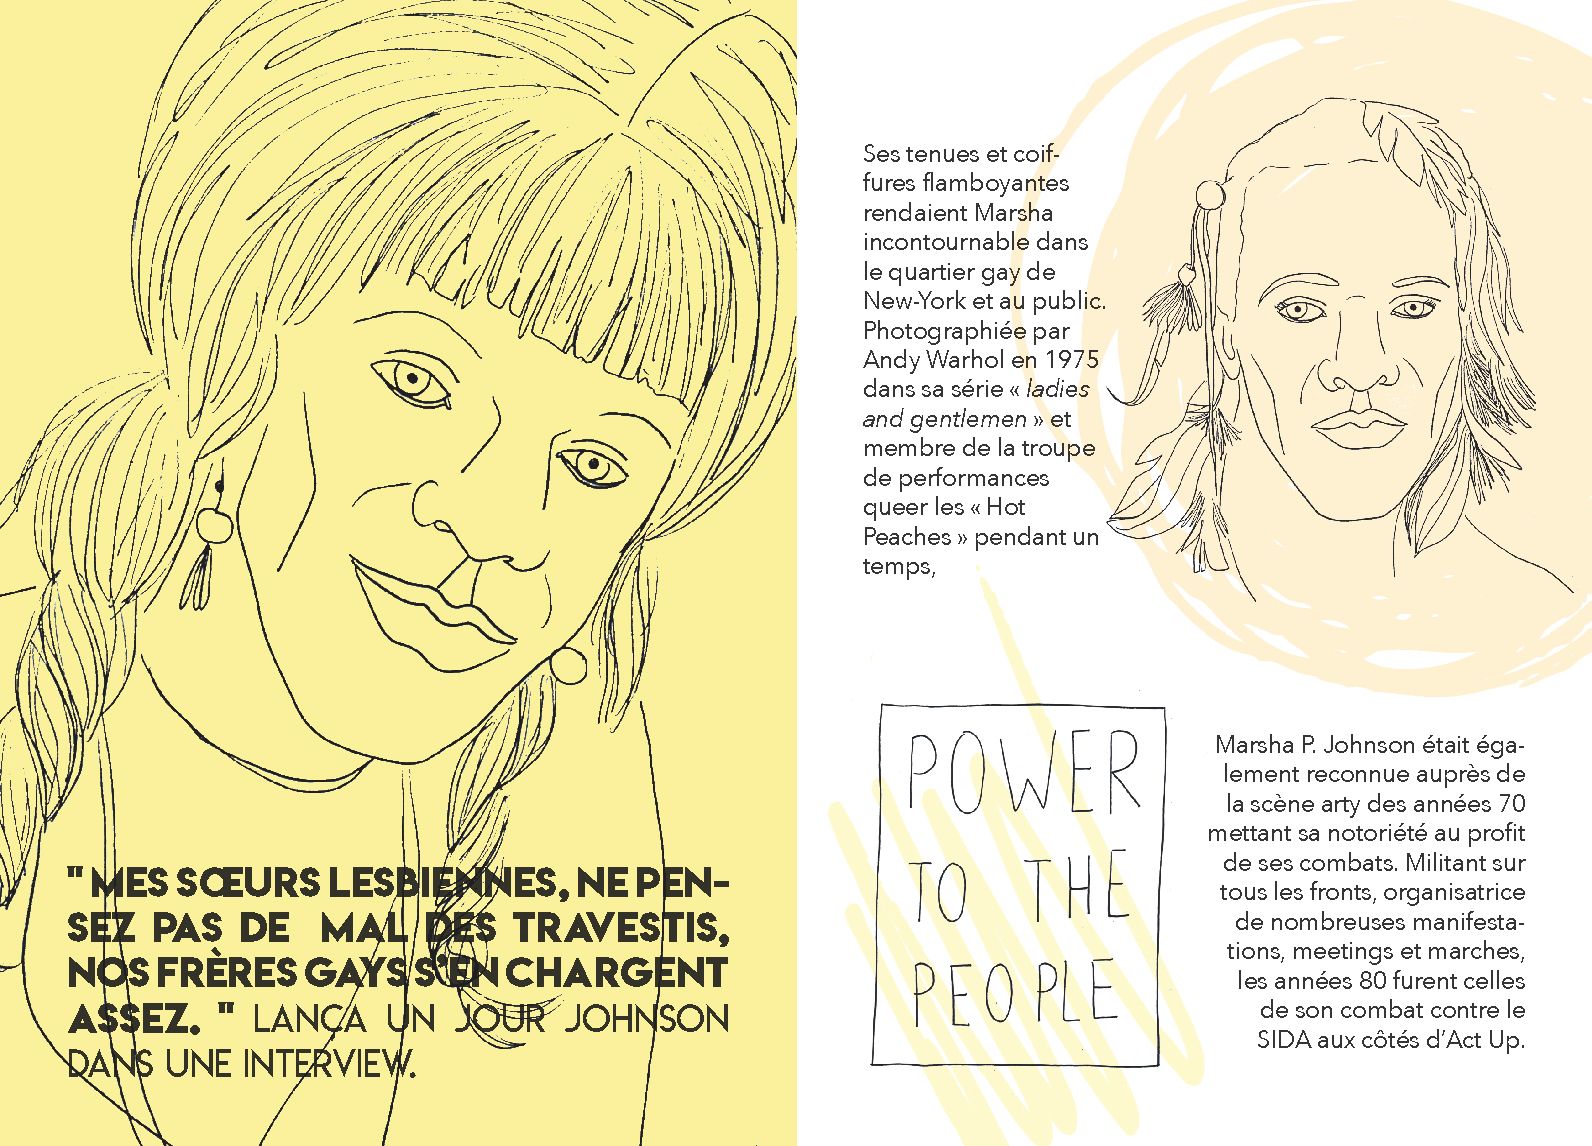 " MES SŒURS LESBIENNES, NE PEN-
SEZ PAS DE MAL DES TRAVESTIS,
NOS FRÈRES GAYS S'EN CHARGENT
ASSEZ. " LANÇA UN JOUR JOHNSON
DANS UNE INTERVIEW.
Ses tenues et coif-
fures flamboyantes
rendaient Marsha
incontournable dans
le quartier gay de
New-York et au public.
Photographiée par
Andy Warhol en 1975
dans sa série « ladies
and gentlemen » et
membre de la troupe
de performances
queer les « Hot
Peaches » pendant un
temps,
POWER
TO THE
PEOPLE
Marsha P. Johnson était éga-
lement reconnue auprès de
la scène arty des années 70
mettant sa notoriété au profit
de ses combats. Militant sur
tous les fronts, organisatrice
de nombreuses manifesta-
tions, meetings et marches,
les années 80 furent celles
de son combat contre le
SIDA aux côtés d'Act Up.